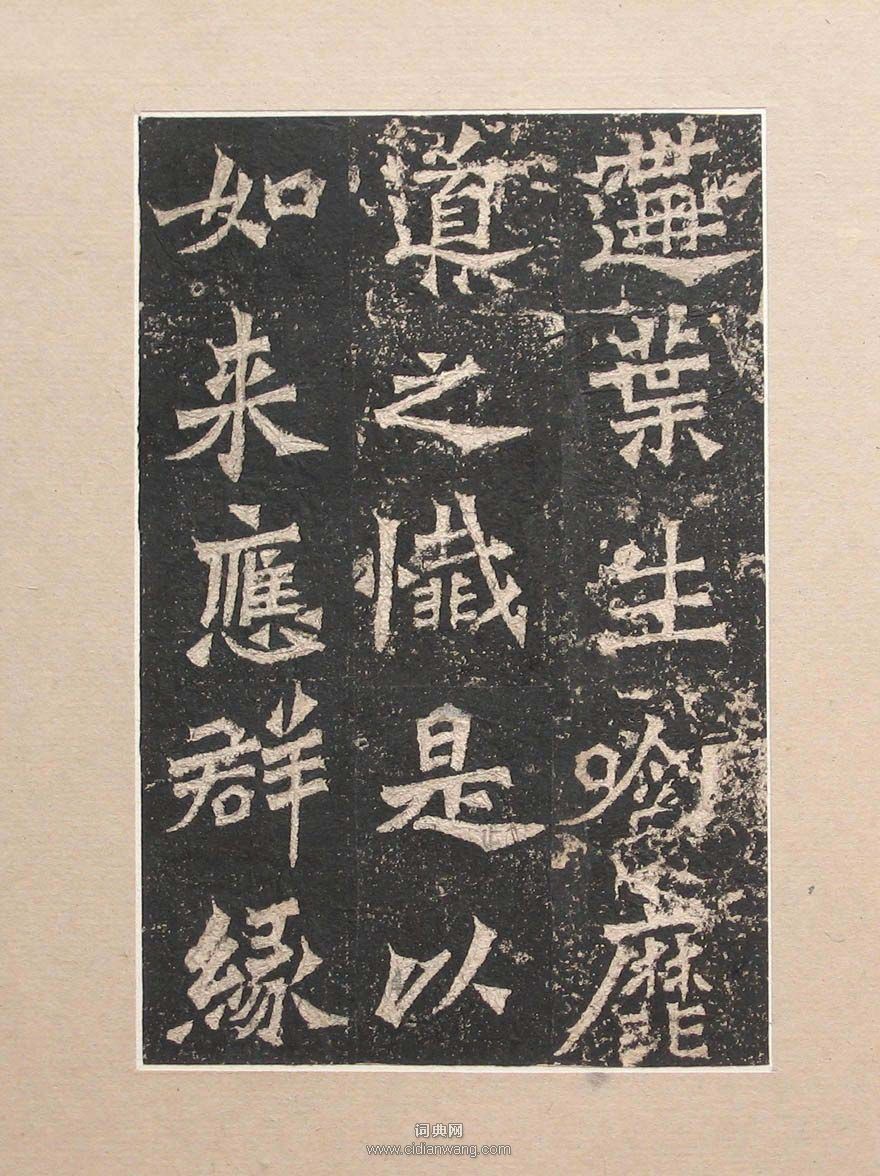 葉生靡
之懺是以
如来應群緣
词典网
www.cidianwang.com